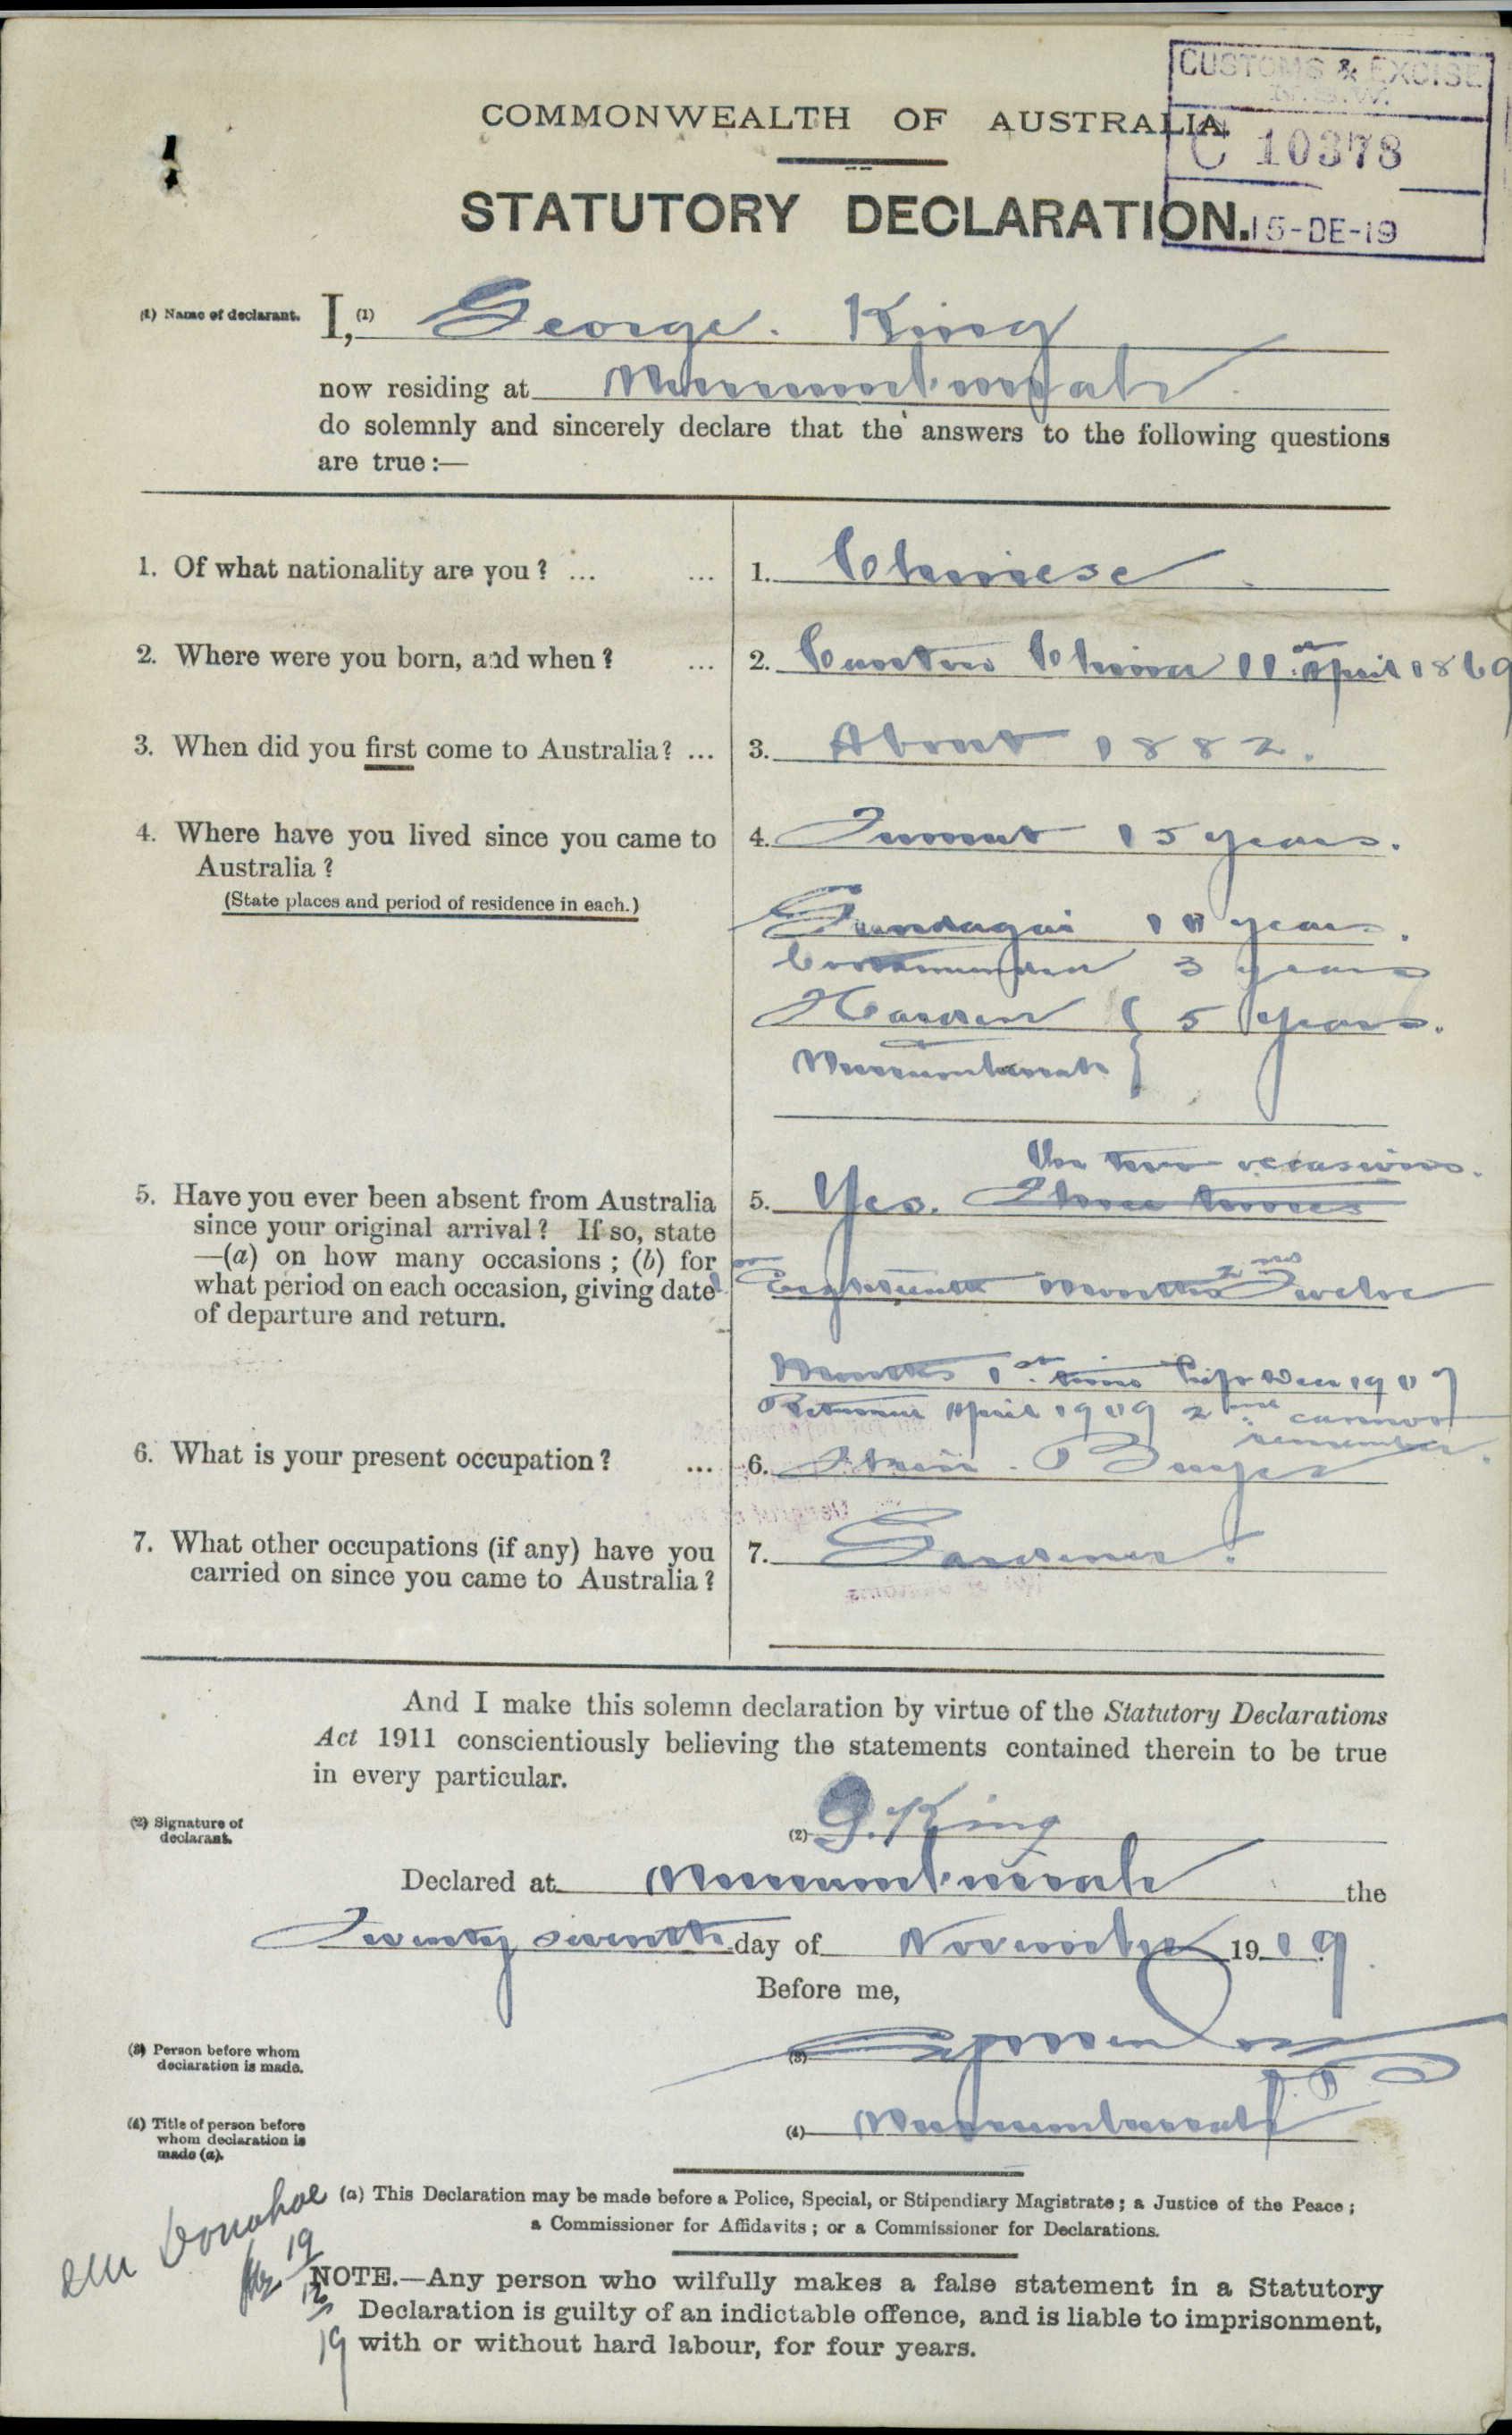 CUSTOMS & EXCISE
N.S.W.
C 10378
15-DE-19
COMMONWEALTH OF AUSTRALIA.
STATUTORY DECLARATION.
(1) Name of declarant. I, (1) George King
now residing at Murrumburrah
do solemnly and sincerely declare that the answers to the following questions
are true:—
1. Of what nationality are you? ... ... 1. Chinese
2. Where were you born, and when? ... 2. Canton China 11 April 1869
3. When did you first come to Australia? ... 3. About 1882.
4. Where have you lived since you came to 4. Tumut 15 years.
Australia?
(State places and period of residence in each.)
Gundagai 11 years.
Cootamundra 3 years
Harden } 5 years.
Murrumburrah }
On two occasions.
5. Have you ever been absent from Australia 5. Yes. Three times
since your original arrival? If so, state
—(a) on how many occasions; (b) for
what period on each occasion, giving date Eighteenth Months 2nd Twelve
of departure and return.
Months 1st time left Dec 1907
Returned April 1909 2nd cannot
remember.
6. What is your present occupation? ... 6. Skin Buyer
7. What other occupations (if any) have you 7. Gardener.
carried on since you came to Australia?
And I make this solemn declaration by virtue of the Statutory Declarations
Act 1911 conscientiously believing the statements contained therein to be true
in every particular.
(2) Signature of
declarant.
(2) G. King
Declared at Murrumburrah the
Twenty seventh day of November 1919
Before me,
(3) Person before whom
declaration is made.
(3)
J.P.
(4) Title of person before
whom declaration is
made (a).
(4) Murrumburrah
(a) This Declaration may be made before a Police, Special, or Stipendiary Magistrate; a Justice of the Peace;
a Commissioner for Affidavits; or a Commissioner for Declarations.
Donohoe
19
12
19
NOTE.—Any person who wilfully makes a false statement in a Statutory
Declaration is guilty of an indictable offence, and is liable to imprisonment,
with or without hard labour, for four years.